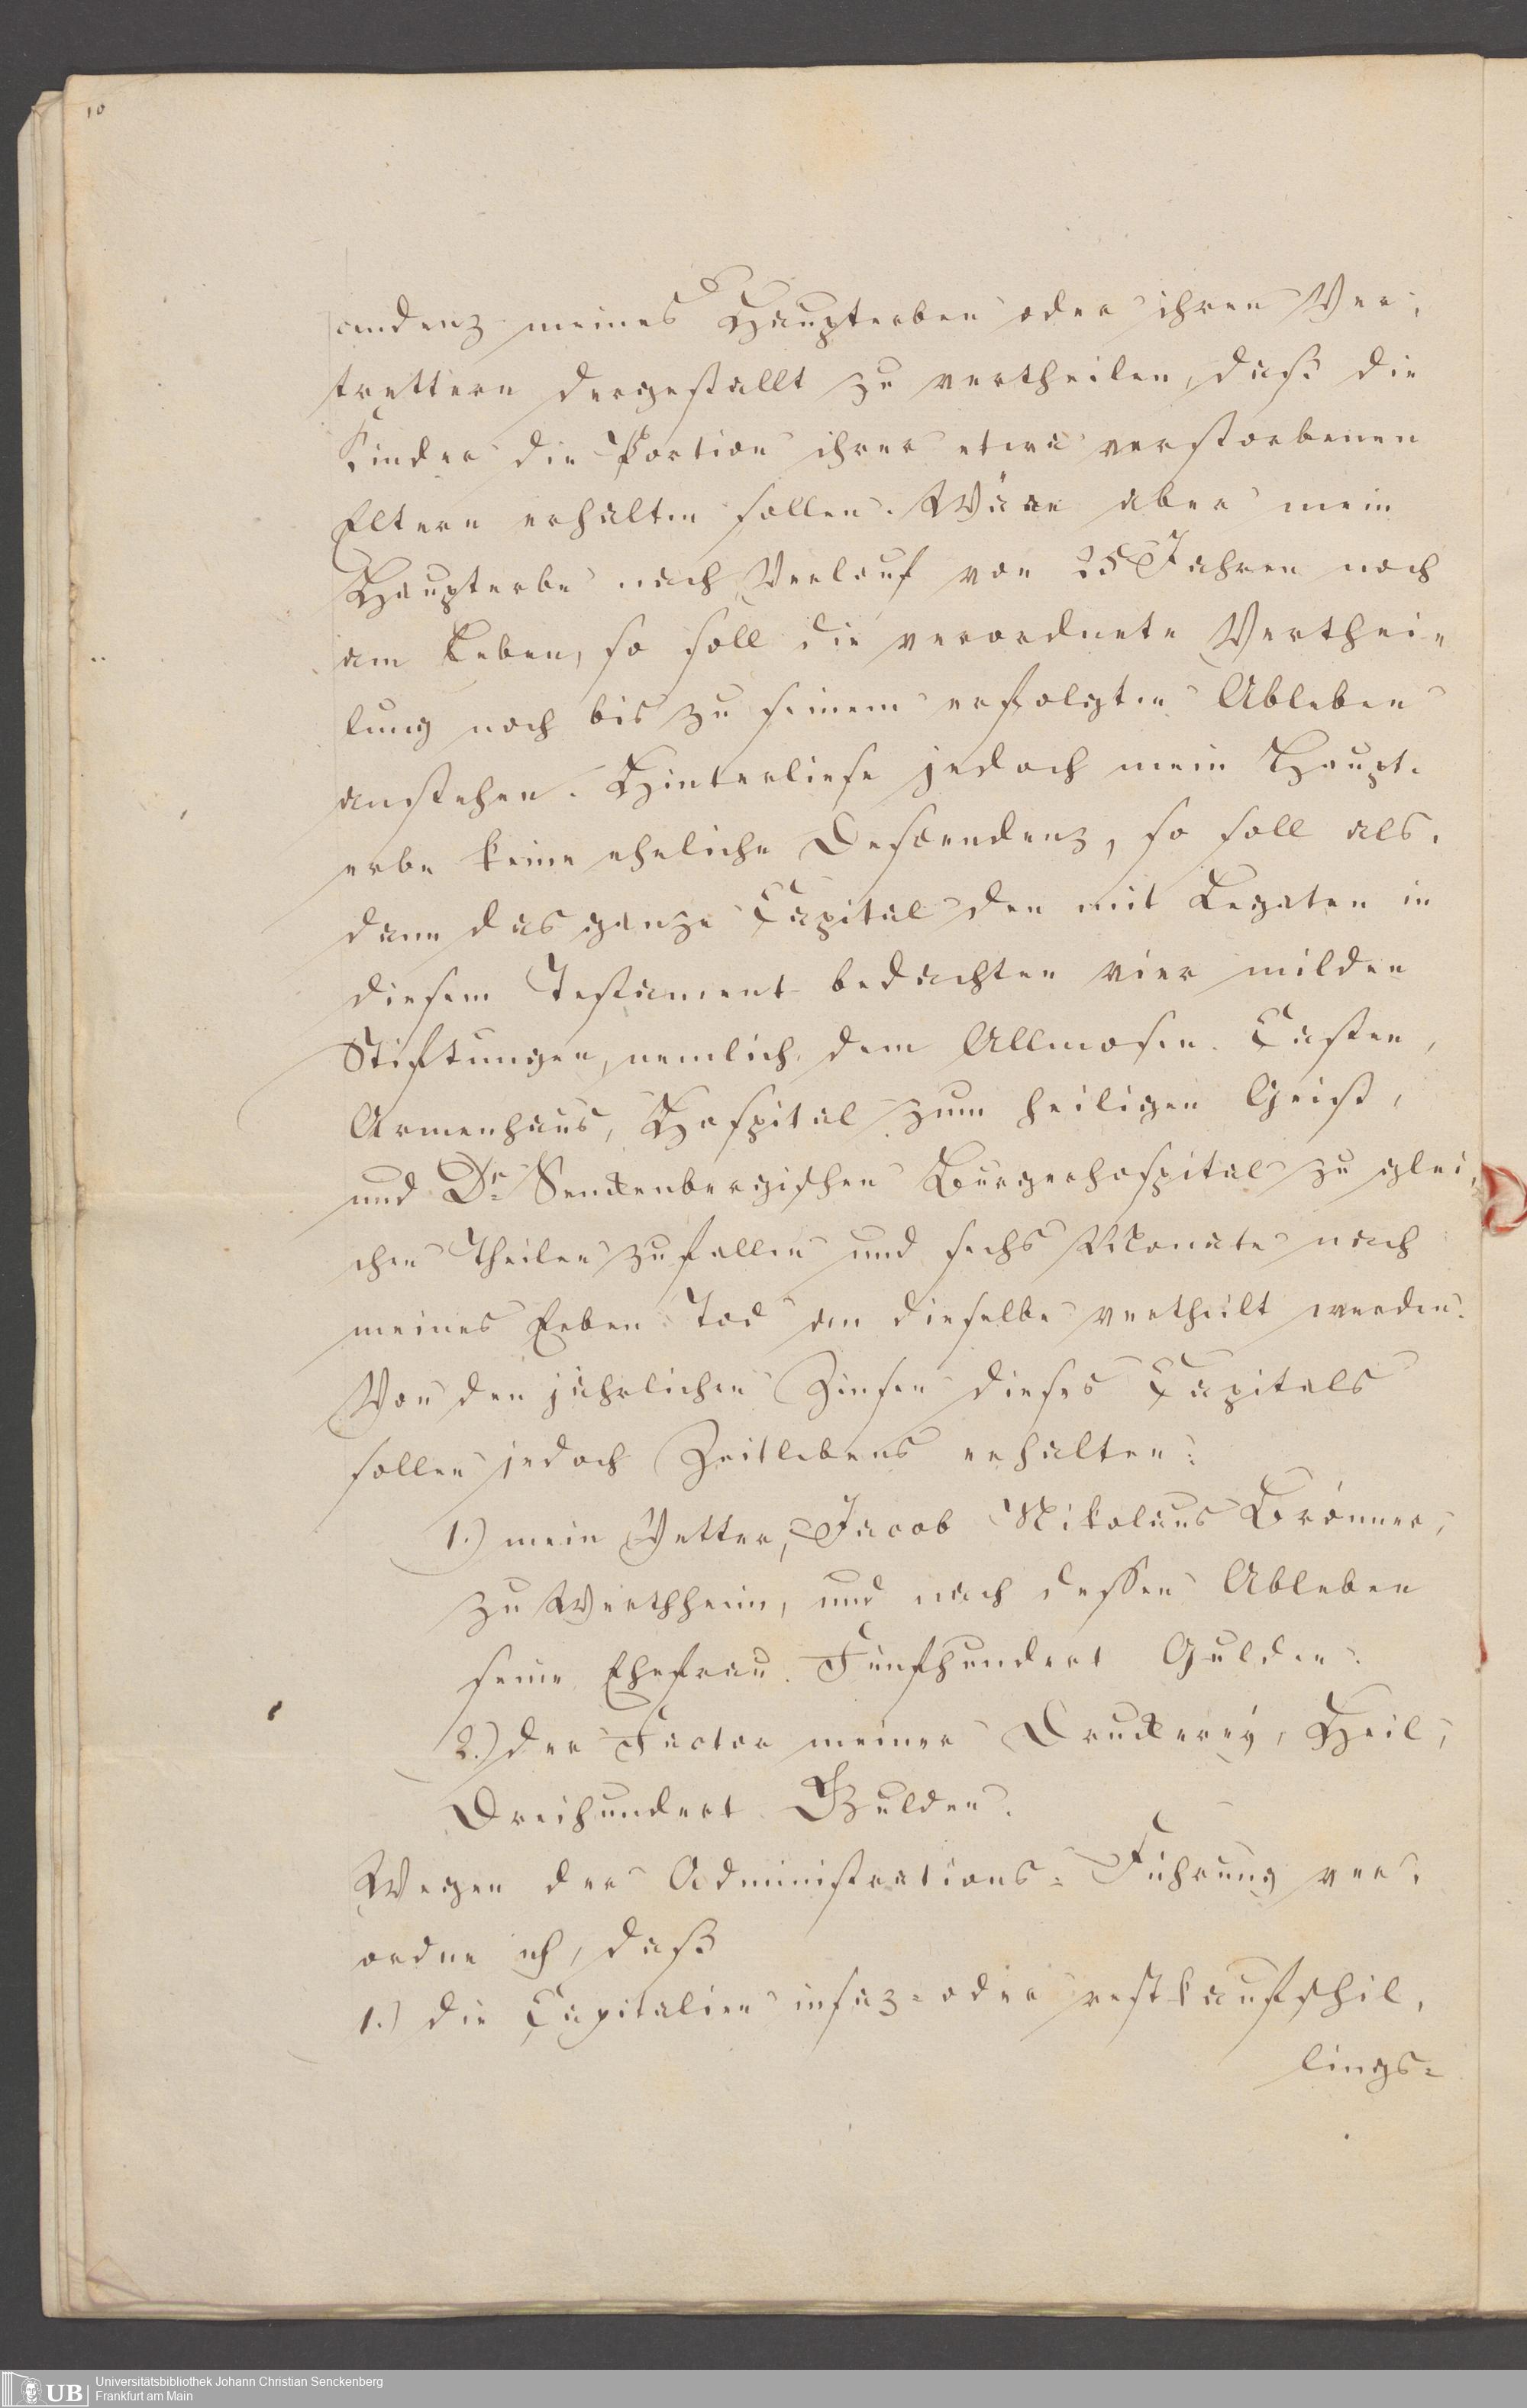 10
cendenz meines Haupterben oder ihren Ver-
trettern dergestallt zu vertheilen, daß die
Kinder die Portion ihrer etwa verstorbenen
Eltern erhalten sollen. Wäre aber mein
Haupterbe nach Verlauf von 25 Jahren noch
am Leben, so soll die verordnete Verthei-
lung noch bis zu seinem erfolgten Ableben
anstehen. Hinterliese jedoch mein Haupt-
erbe keine eheliche Descendenz, so soll als-
dann das ganze Capital den mit Legaten in
diesem Testament bedachten vier milden
Stiftungen, nemlich dem Allmosen-Casten,
Armenhaus, Hospital zum heiligen Geist,
und Dr. Senckenbergischen Bürgerhospital zu glei-
chen Theilen zufallen und sechs Monate nach
meines Erben Tod an dieselbe vertheilt werden.
Von den jährlichen Zinsen dieses Capitals
sollen jedoch Zeitlebens erhalten:
1.) mein Vetter, Jacob Nikolaus Brönner,
zu Werthheim, und nach dessen Ableben
seine Ehefrau Fünfhundert Gulden.
2.) der Factor meiner Druckerey, Heil,
Dreihundert Gulden.
Wegen der Administrations-Führung ver-
ordne ich, daß
1.) die Capitalien insaz- oder restkaufschil-
lings-
UB
Universitätsbibliothek Johann Christian Senckenberg
Frankfurt am Main